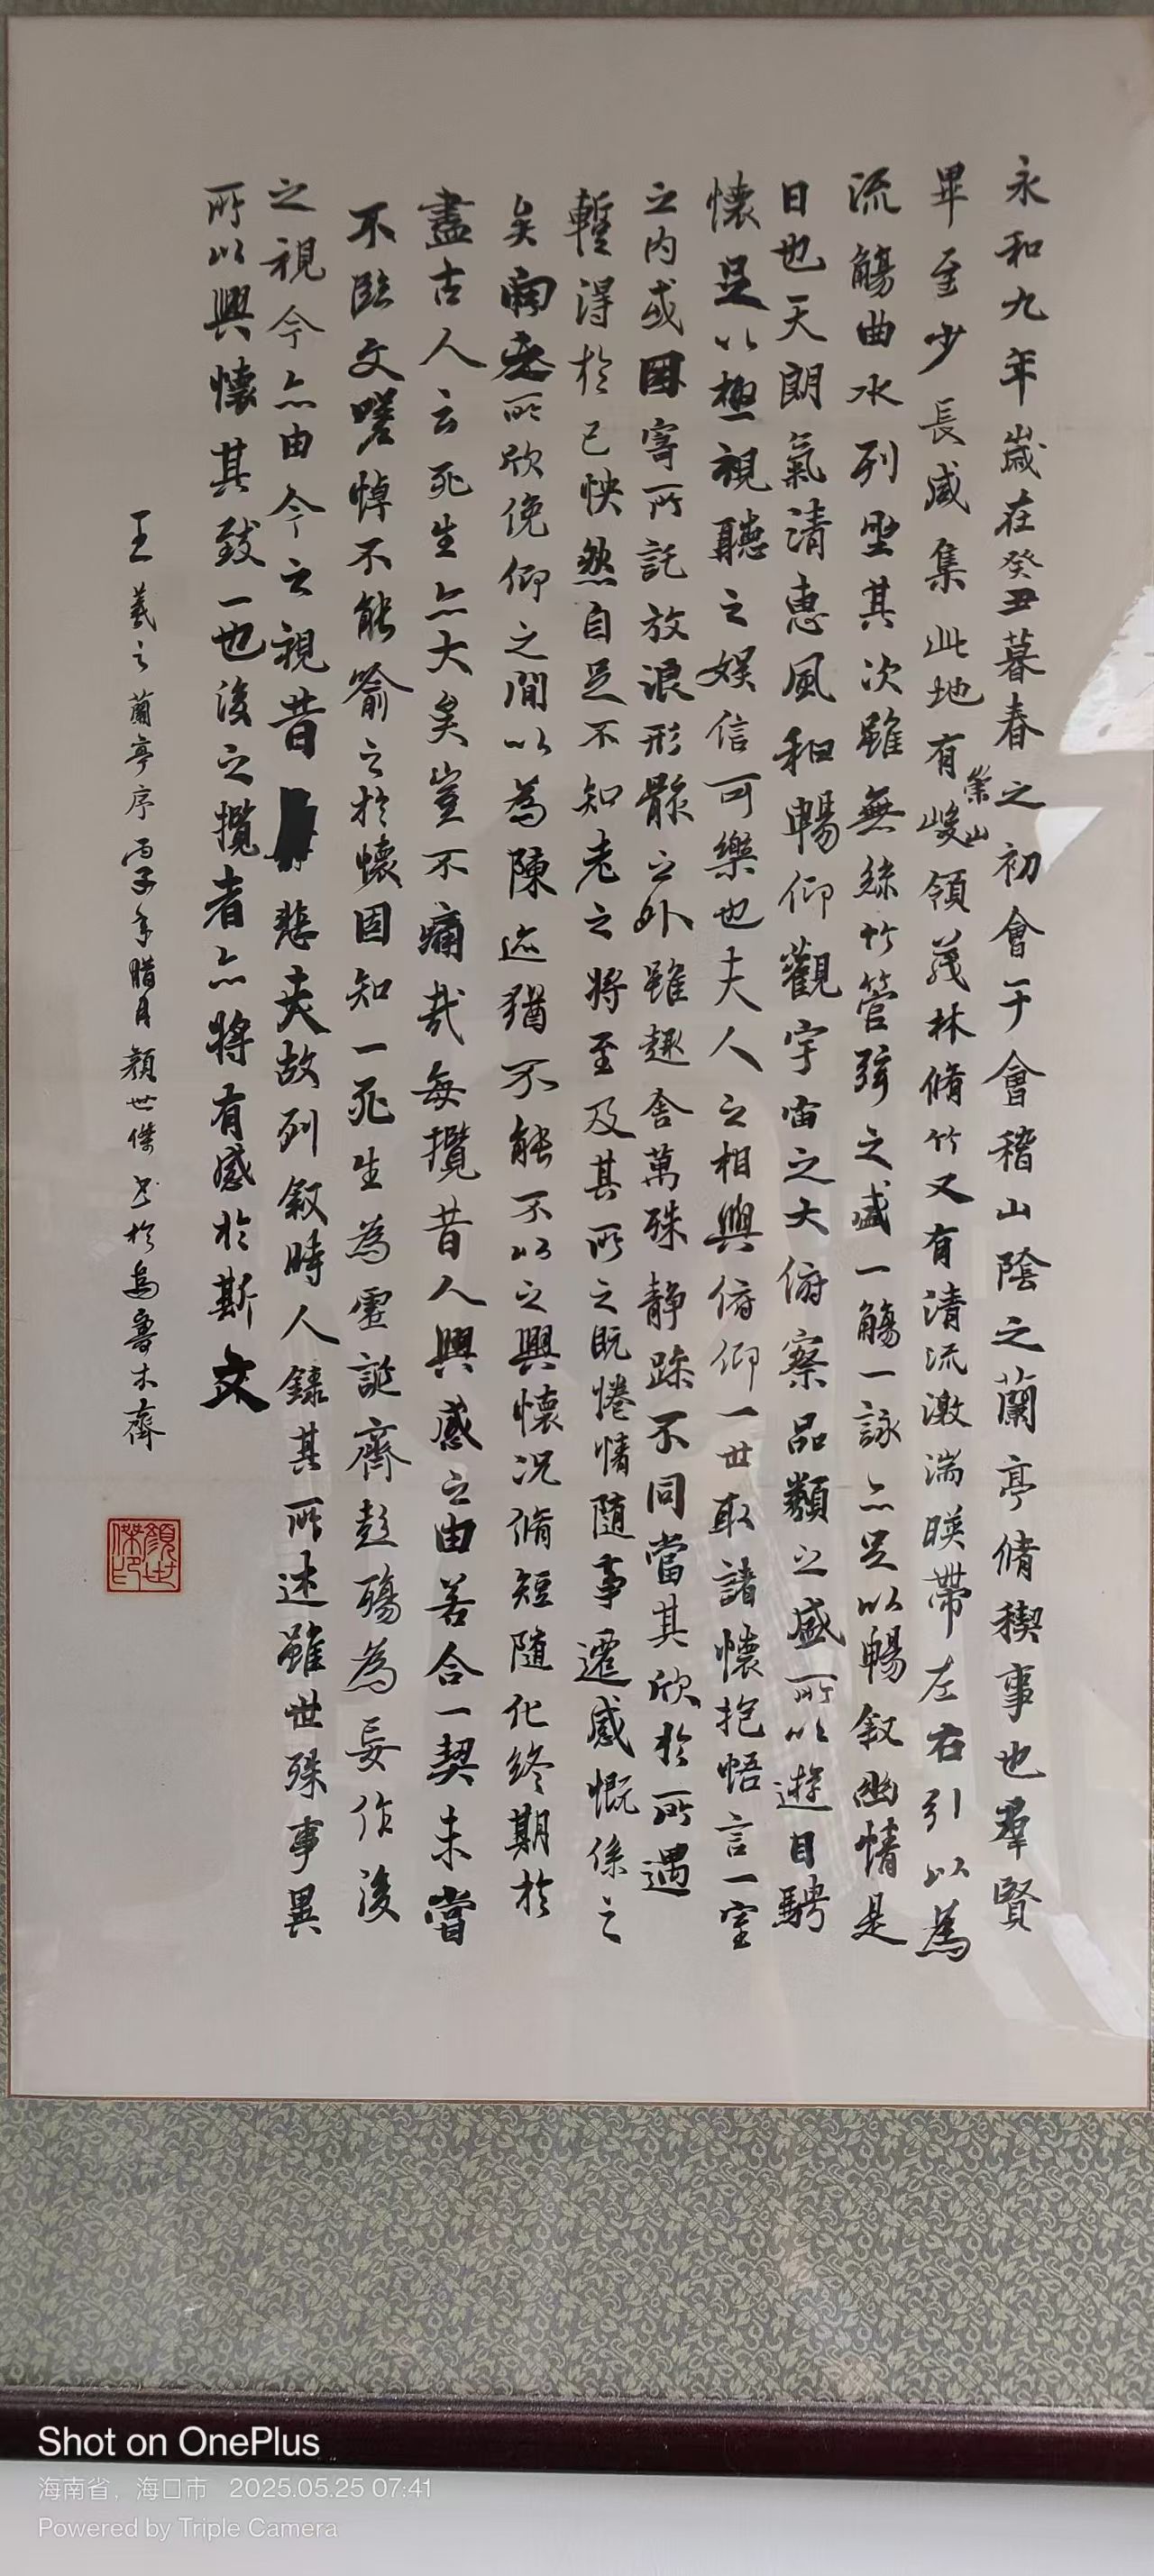 永和九年歲在癸丑暮春之初會于會稽山陰之蘭亭脩稧事也羣賢
畢至少長咸集此地有崇山峻領茂林脩竹又有清流激湍暎帶左右引以為
流觴曲水列坐其次雖無絲竹管弦之盛一觴一詠亦足以暢叙幽情是
日也天朗氣清惠風和暢仰觀宇宙之大俯察品類之盛所以遊目騁
懷足以極視聽之娱信可樂也夫人之相與俯仰一世取諸懷抱悟言一室
之内或因寄所託放浪形骸之外雖趣舍萬殊静躁不同當其欣於所遇
暫得於己怏然自足不知老之將至及其所之既惓情隨事遷感慨係之
矣向之所欣俛仰之間以為陳迹猶不能不以之興懷況脩短隨化終期於
盡古人云死生亦大矣豈不痛哉每攬昔人興感之由若合一契未嘗
不臨文嗟悼不能喻之於懷固知一死生為虛誕齊彭殤為妄作後
之視今亦由今之視昔悲夫故列叙時人錄其所述雖世殊事異
所以興懷其致一也後之攬者亦將有感於斯文
王羲之蘭亭序丙子年腊月顏世傑书於烏魯木齊
顏世傑印
Shot on OnePlus
海南省，海口市 2025.05.25 07:41
Powered by Triple Camera